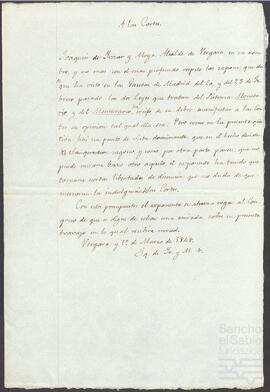 A las Cortes
Joaquin de Irizar y Moya Alcalde de Vergara, en su nom-
bre, y no mas con el mas profundo respeto las expone: que des-
que ha visto en las Gacetas de Madrid del 20, y del 23 de Fe-
brero pasado las dos leyes que tratan del Sistema Moneta-
rio, y del Monetario, creyó de su deber manifestar a las Cor-
tes su opinion tal qual ella sea. Pero como en la presente cues-
tion hay un punto de vista dominante, que en el hecho decide
negocio y como por otra parte parece, que no
puede mirarse bajo otro aspecto el exponente ha tenido que
tomarse ciertas libertades de diccion que no duda de que
merezcan la indulgencia de las Cortes.
Con estos presupuestos el exponente se atreve a rogar al Con-
greso de que se digne de echar una ojeada sobre su presente
trabajo en lo qual recibirá merced.
Vergara y 1º de Marzo de 1848.
Jq. de Ir. y M.
Sancho
el Sabio
Fundazioa